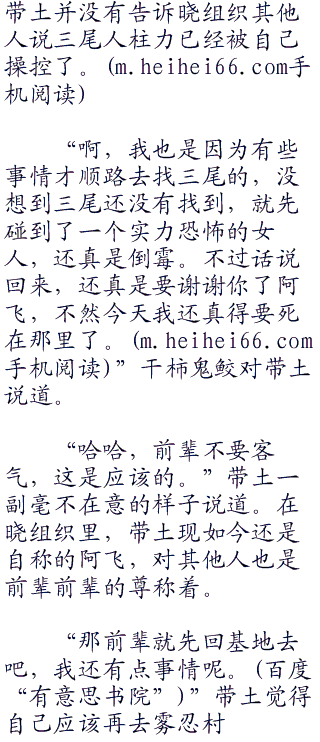 带土并没有告诉晓组织其他
人说三尾人柱力已经被自己
操控了。(m.heihei66.com手
机阅读)
“啊，我也是因为有些
事情才顺路去找三尾的，没
想到三尾还没有找到，就先
碰到了一个实力恐怖的女
人，还真是倒霉。不过话说
回来，还真是要谢谢你了阿
飞，不然今天我还真得要死
在那里了。(m.heihei66.com
手机阅读)”干柿鬼鲛对带土
说道。
“哈哈，前辈不要客
气，这是应该的。”带土一
副毫不在意的样子说道。在
晓组织里，带土现如今还是
自称的阿飞，对其他人也是
前辈前辈的尊称着。
“那前辈就先回基地去
吧，我还有点事情呢。(百度
“有意思书院”)”带土觉得
自己应该再去雾忍村